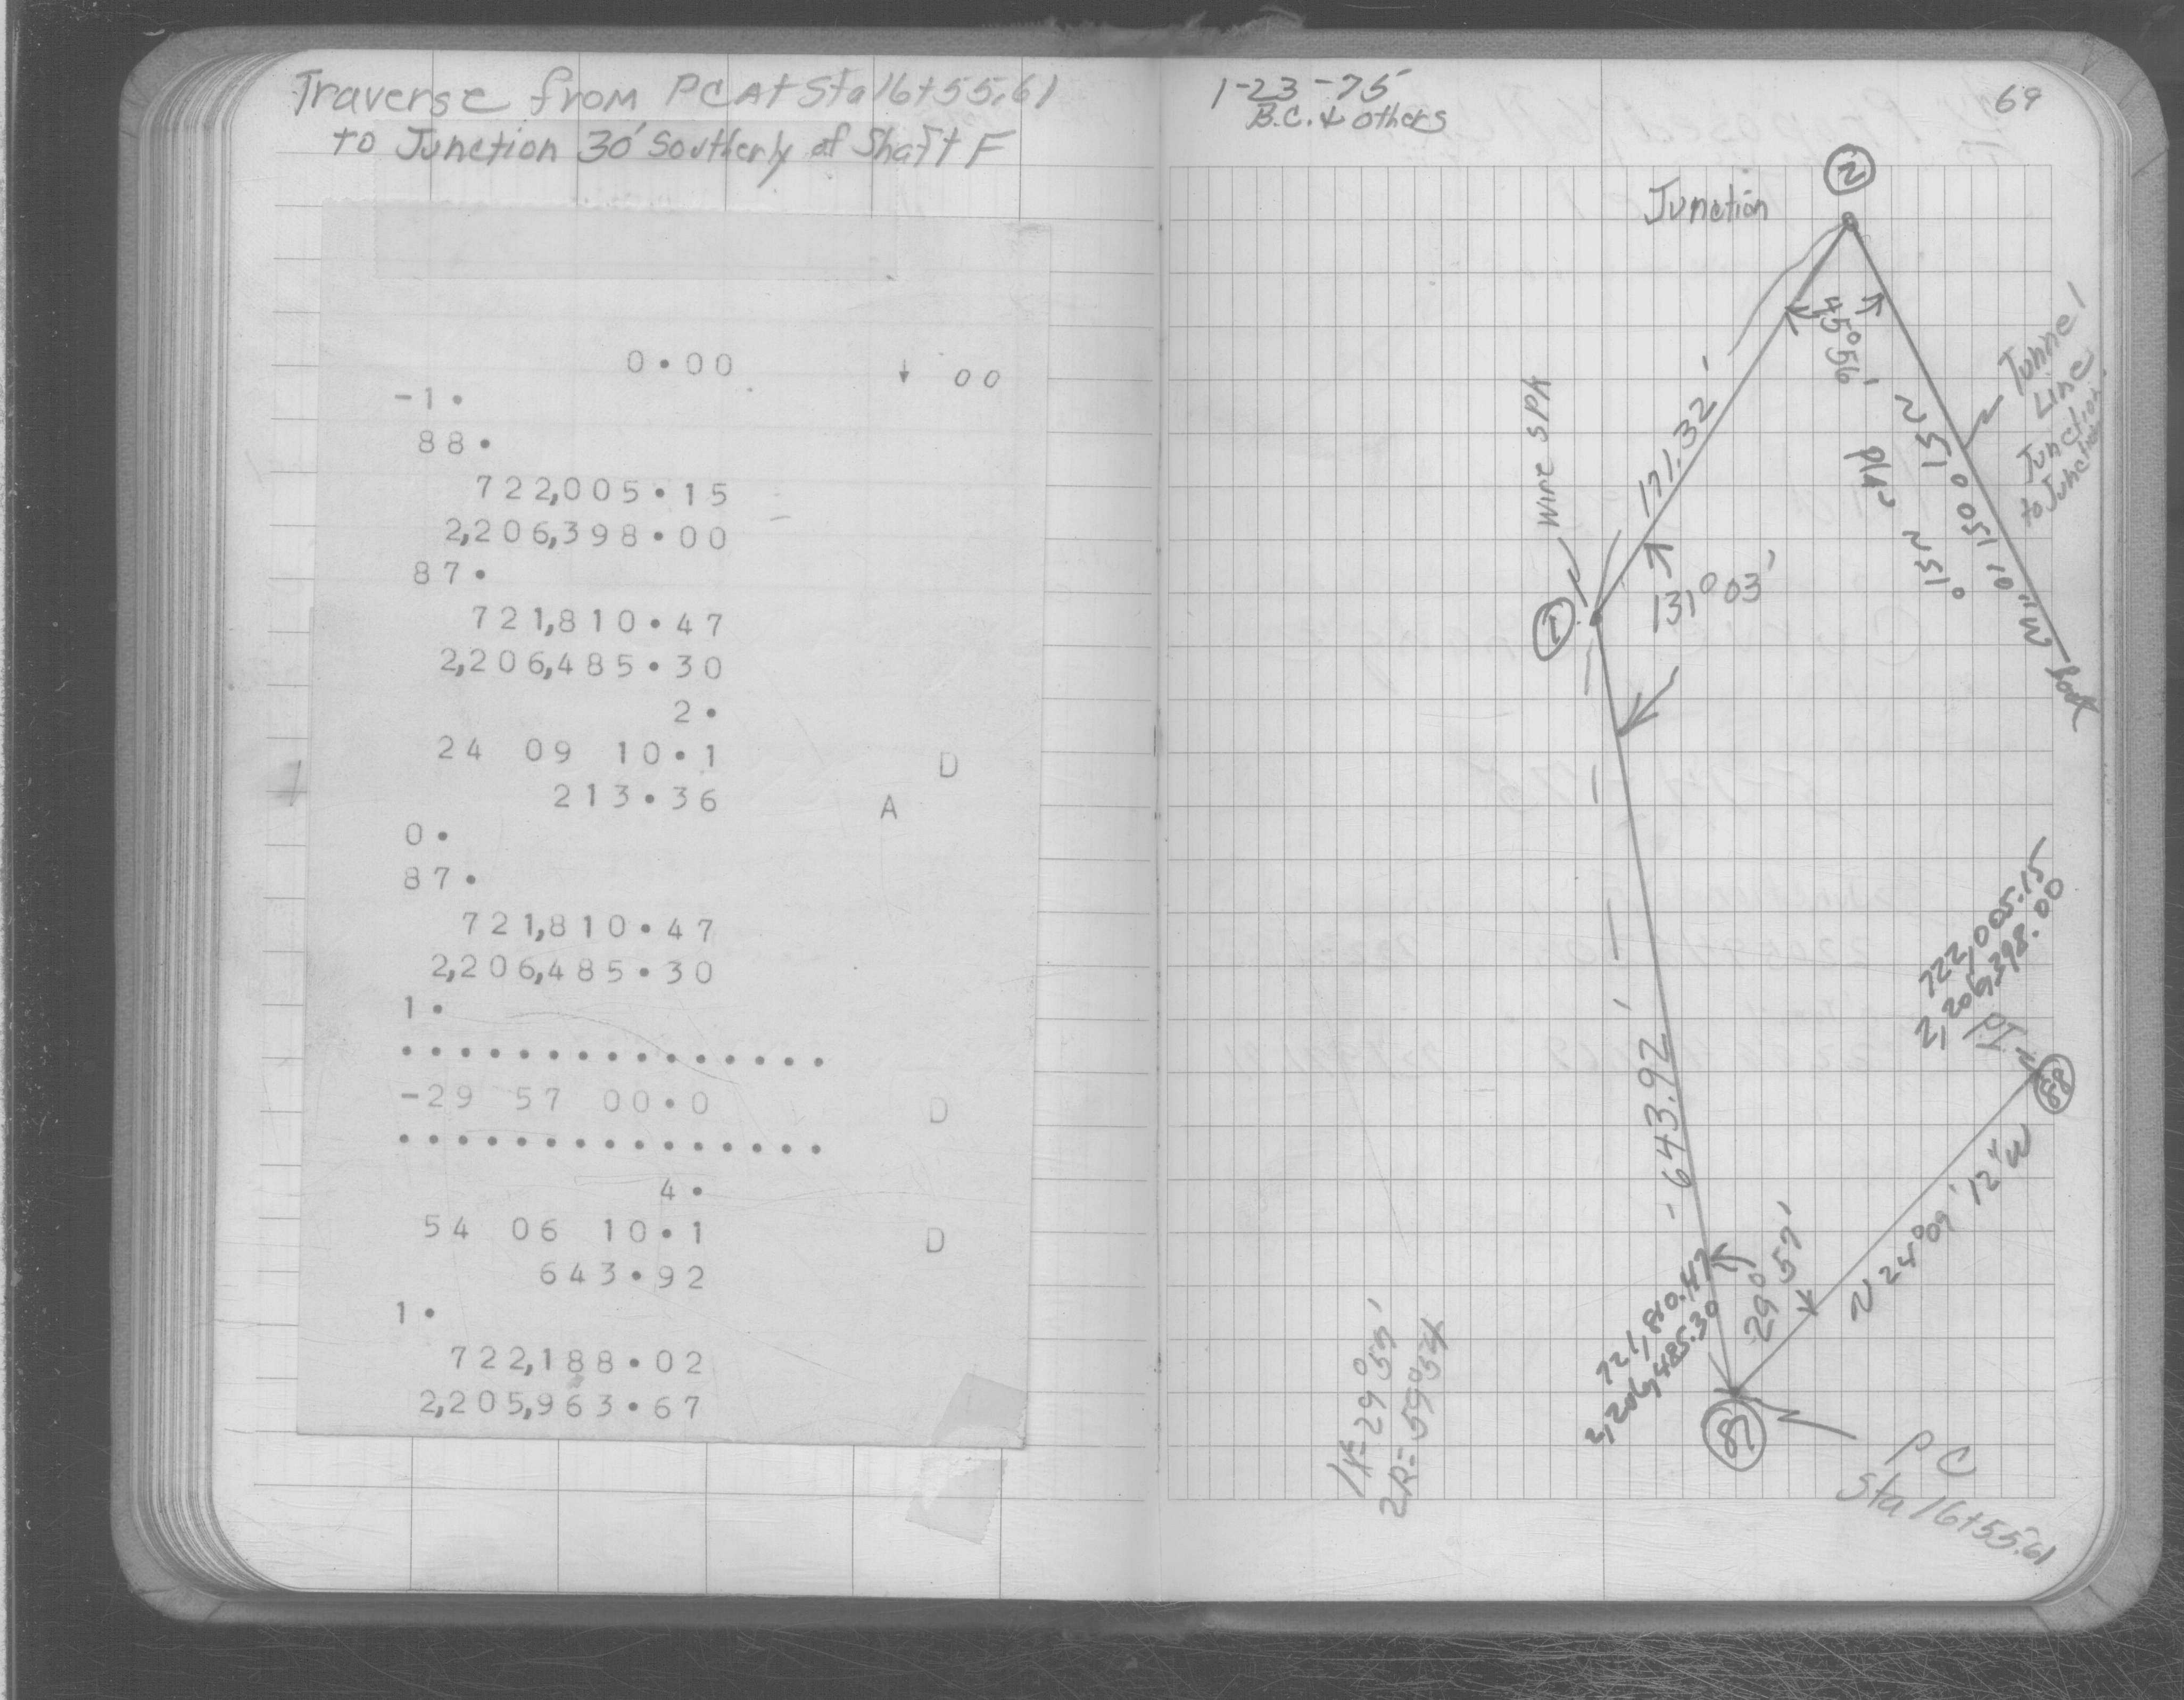 Traverse from PC At Sta 16+55.61
to Junction 30' Southerly of Shaft F
0.00 ↓ 00
-1.
88.
722,005.15
2,206,398.00
87.
721,810.47
2,206,485.30
2.
24 09 10.1 D
213.36 A
0.
87.
721,810.47
2,206,485.30
1.
...............
-29 57 00.0 D
...............
4.
54 06 10.1 D
643.92
1.
722,188.02
2,205,963.67
1-23-75
B.C. & others
69
2
Junction
45°56'
171.32'
Wire Spk
1
131°03'
Tunnel
Line
Junction
to Junction
N51°05'10"W book
Plan N51°
643.92'
722,005.15
2,206,398.00
PI
88
N 24°09'12"W
29°57'
721,810.47
2,206,485.30
87
PC
Sta 16+55.61
1R=29°57'
2R=59°54'